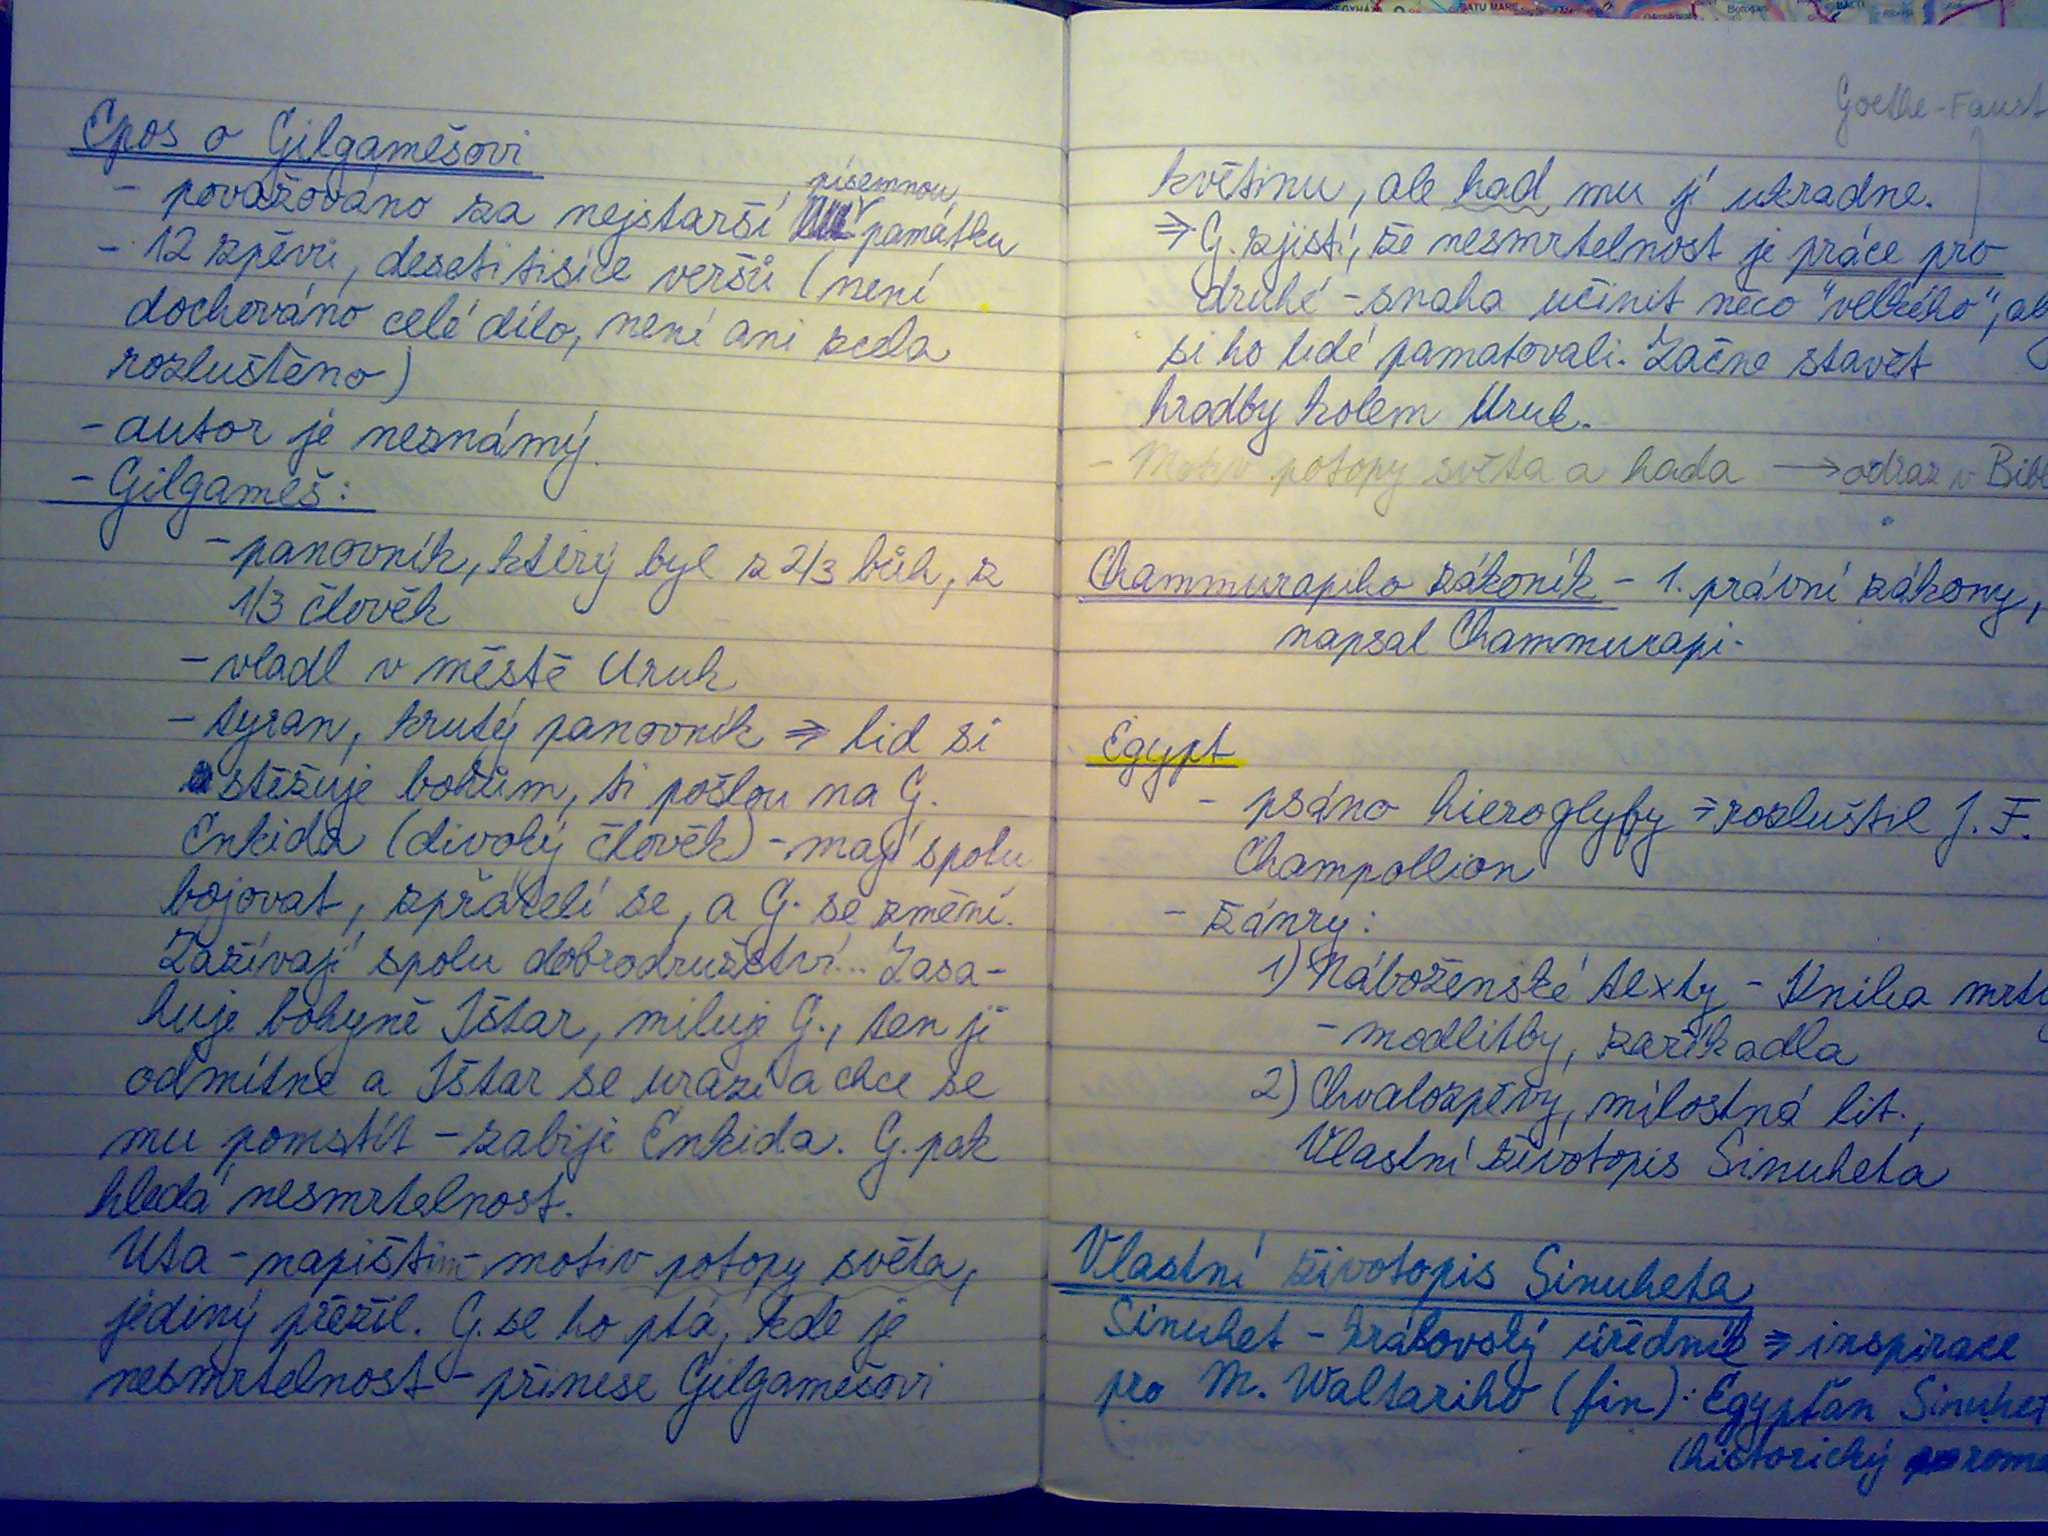 Epos o Gilgaměšovi
- považováno za nejstarší písemnou památku
- 12 zpěvů, desetitisíce veršů (není
dochováno celé dílo, není ani zcela
rozluštěno)
- autor je neznámý
- Gilgameš:
- panovník, který byl z 2/3 bůh, z
1/3 člověk
- vládl v městě Uruk
- tyran, krutý panovník ⇒ lid si
stěžuje bohům, ti pošlou na G.
Enkida (divoký člověk) - mají spolu
bojovat, zpřátelí se, a G. se změní.
Zažívají spolu dobrodružství... Zasa-
huje bohyně Ištar, miluje G., ten ji
odmítne a Ištar se urazí a chce se
mu pomstít - zabije Enkida. G. pak
hledá nesmrtelnost.
Uta - napištim - motiv potopy světa,
jediný přežil. G. se ho ptá, kde je
nesmrtelnost - přinese Gilgamešovi
Goethe - Faust
květinu, ale had mu ji ukradne.
⇒ G. zjistí, že nesmrtelnost je práce pro
druhé - snaha učinit něco "velkého", ab
si ho lidé pamatovali. Začne stavět
hradby kolem Uruk.
- Motiv potopy světa a hada → odraz v Bib
Chammurapiho zákoník - 1. právní zákony,
napsal Chammurapi.
Egypt
- psáno hieroglyfy ⇒ rozluštil J. F.
Champollion
- žánry:
1) Náboženské texty - Kniha mrtv
- modlitby, zaříkadla
2) Chvalozpěvy, milostná lit.,
Vlastní životopis Sinuheta
Vlastní životopis Sinuheta
Sinuhet - královský úředník ⇒ inspirace
pro M. Waltariho (fin): Egypťan Sinuhet
(historický roma